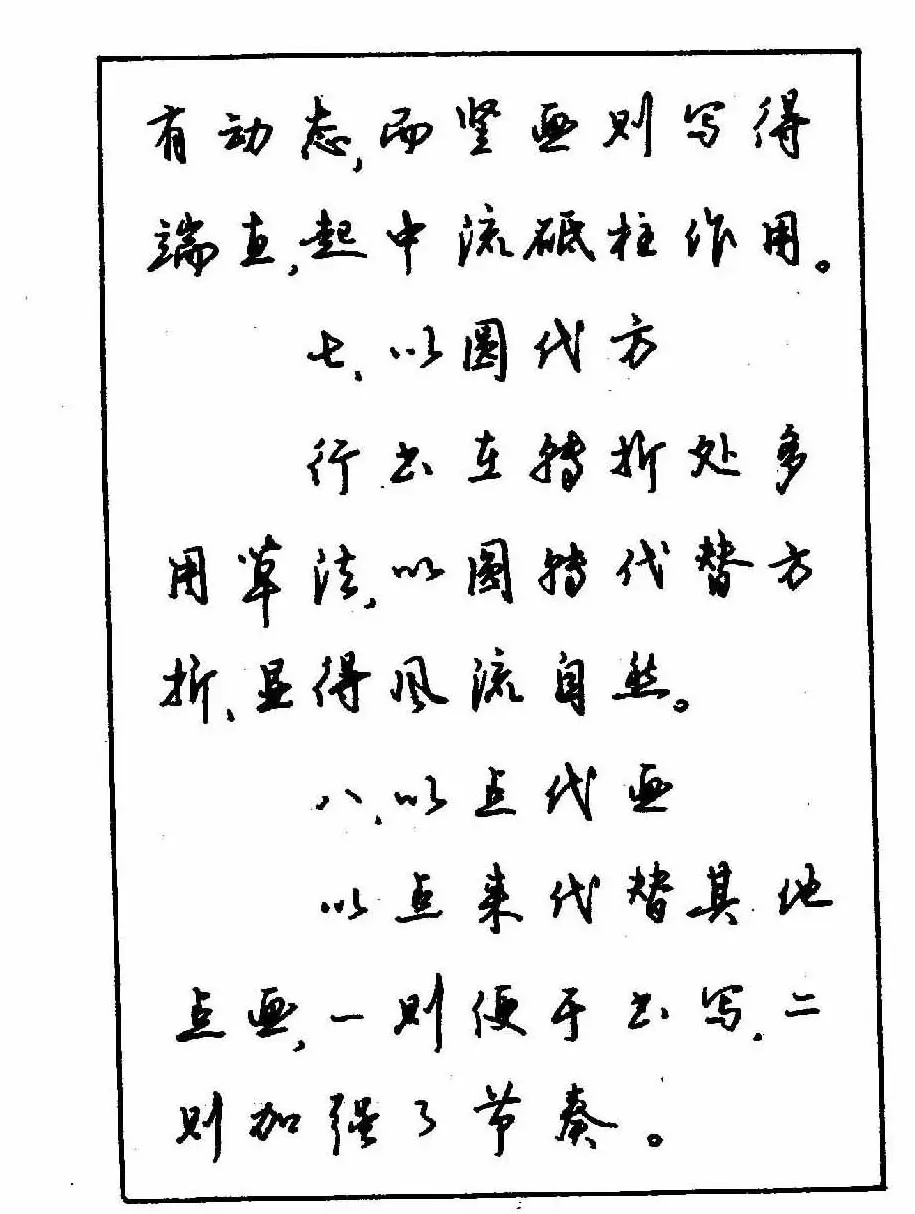 有动态,而竖画则写得
端直,起中流砥柱作用。
七、以圆代方
行书在转折处多
用草法,以圆转代替方
折、显得风流自然。
八、以点代画
以点来代替其他
点画,一则便于书写、二
则加强了节奏。